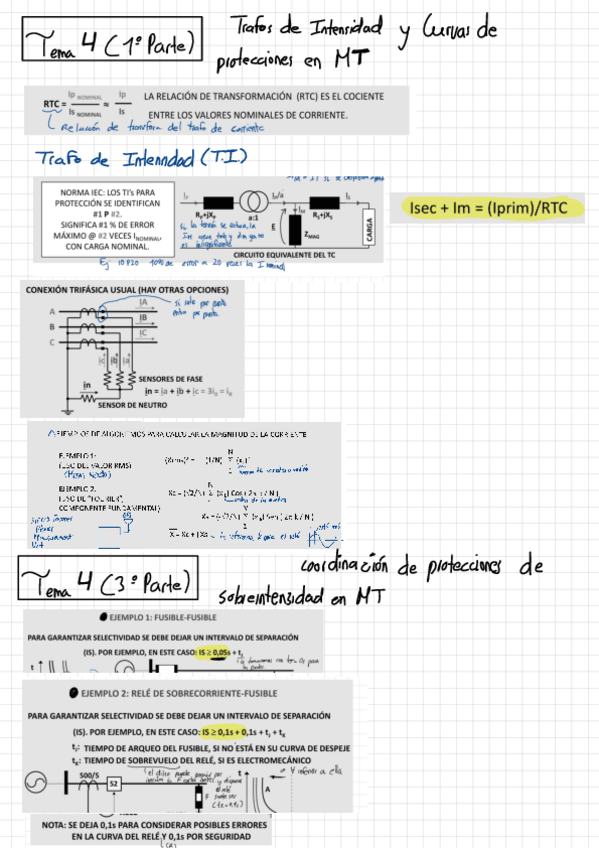 Tema 4 (1º Parte)
Trafos de Intensidad y Curvas de
protecciones en MT
RTC = Ip NOMINAL / Is NOMINAL ≈ Ip / Is
LA RELACIÓN DE TRANSFORMACIÓN (RTC) ES EL COCIENTE
ENTRE LOS VALORES NOMINALES DE CORRIENTE.
Relación de transform del trafo de corriente
Trafo de Intenndad (T.I.)
NORMA IEC: LOS TI's PARA
PROTECCIÓN SE IDENTIFICAN
#1 P #2.
SIGNIFICA #1 % DE ERROR
MÁXIMO @ #2 VECES INOMINAL,
CON CARGA NOMINAL.
Ip
Ip/a
Is
Rp+jXp
a:1
IM
Rs+jXs
E
ZMAG
CARGA
CIRCUITO EQUIVALENTE DEL TC
Isec + Im = (Iprim)/RTC
Ej 10P20 10% de error a 20 veces la I nominal
CONEXIÓN TRIFÁSICA USUAL (HAY OTRAS OPCIONES)
A
B
C
IA
IB
IC
si sale por punto
entra por punto
ic
ib
ia
in
SENSORES DE FASE
in = ia + ib + ic = 3i0 = iR
SENSOR DE NEUTRO
EJEMPLOS DE ALGORITMOS PARA CALCULAR LA MAGNITUD DE LA CORRIENTE
EJEMPLO 1:
(USO DEL VALOR RMS)
EJEMPLO 2:
(USO DE "FOURIER",
COMPONENTE FUNDAMENTAL)
Tema 4 (3º Parte)
coordinación de protecciones de
sobreintensidad en MT
EJEMPLO 1: FUSIBLE-FUSIBLE
PARA GARANTIZAR SELECTIVIDAD SE DEBE DEJAR UN INTERVALO DE SEPARACIÓN
(IS). POR EJEMPLO, EN ESTE CASO: IS ≥ 0,05s + tj
t
EJEMPLO 2: RELÉ DE SOBRECORRIENTE-FUSIBLE
PARA GARANTIZAR SELECTIVIDAD SE DEBE DEJAR UN INTERVALO DE SEPARACIÓN
(IS). POR EJEMPLO, EN ESTE CASO: IS ≥ 0,1s + 0,1s + tj + tK
tj: TIEMPO DE ARQUEO DEL FUSIBLE, SI NO ESTÁ EN SU CURVA DE DESPEJE
tK: TIEMPO DE SOBREVUELO DEL RELÉ, SI ES ELECTROMECÁNICO
500/5
52
t
A
Y inferior a ella
NOTA: SE DEJA 0,1s PARA CONSIDERAR POSIBLES ERRORES
EN LA CURVA DEL RELÉ Y 0,1s POR SEGURIDAD